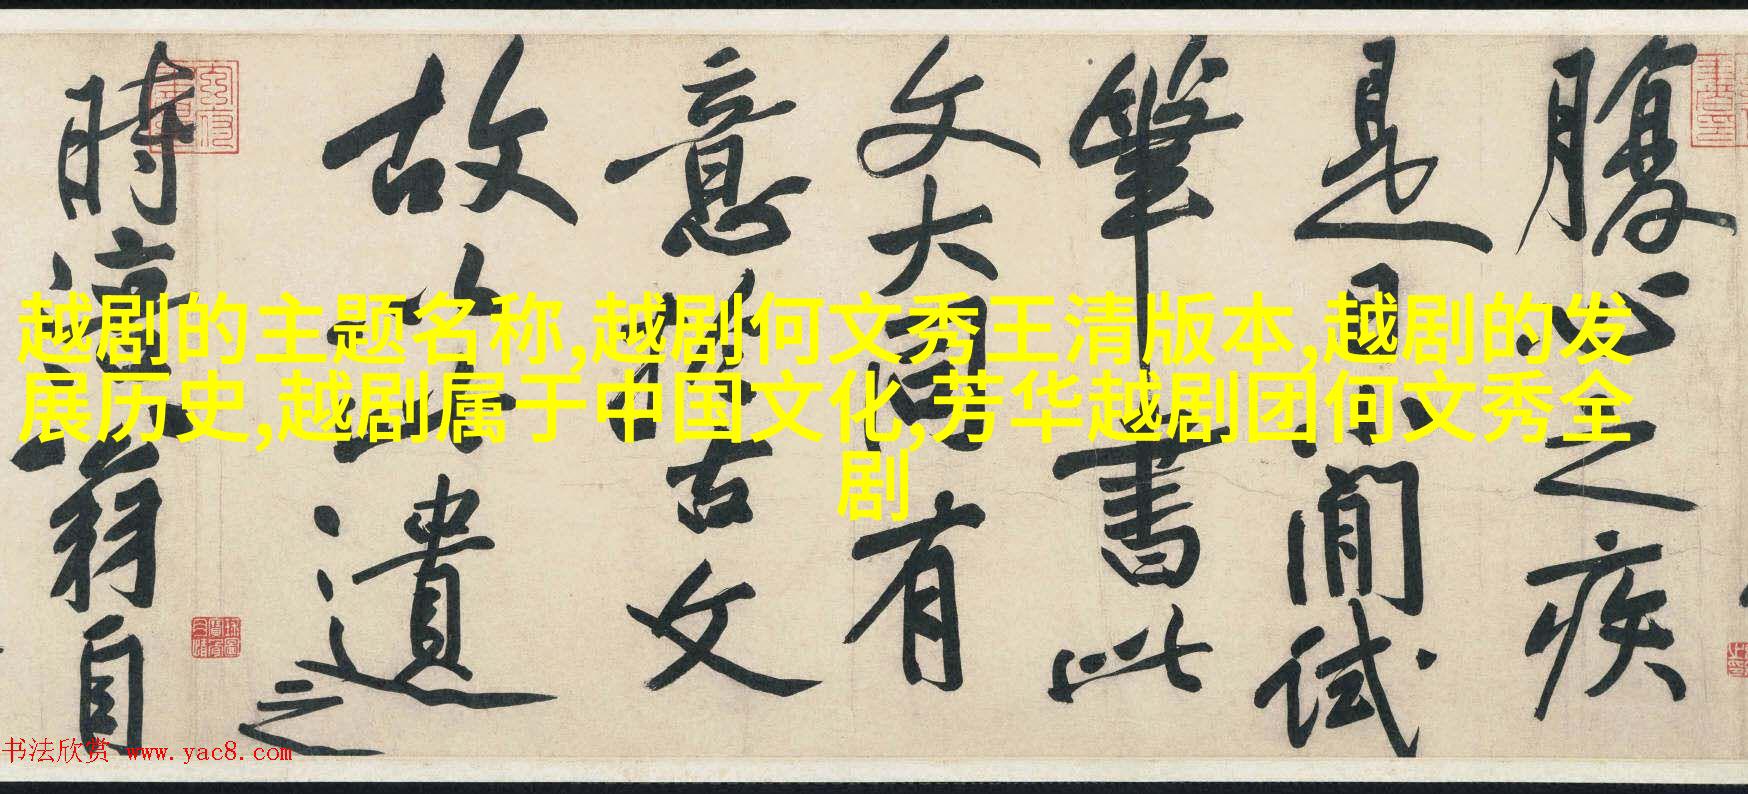 越剧的主题名称,越剧何文秀王清版本,越剧的发
展历史,越剧属于中国文化,芳华越剧团何文秀全
剧
腹心之疾
是日小閒試
筆書此
文大同有
意於古文
故以此遺之
時涪翁自
书法欣赏 www.yac8.com